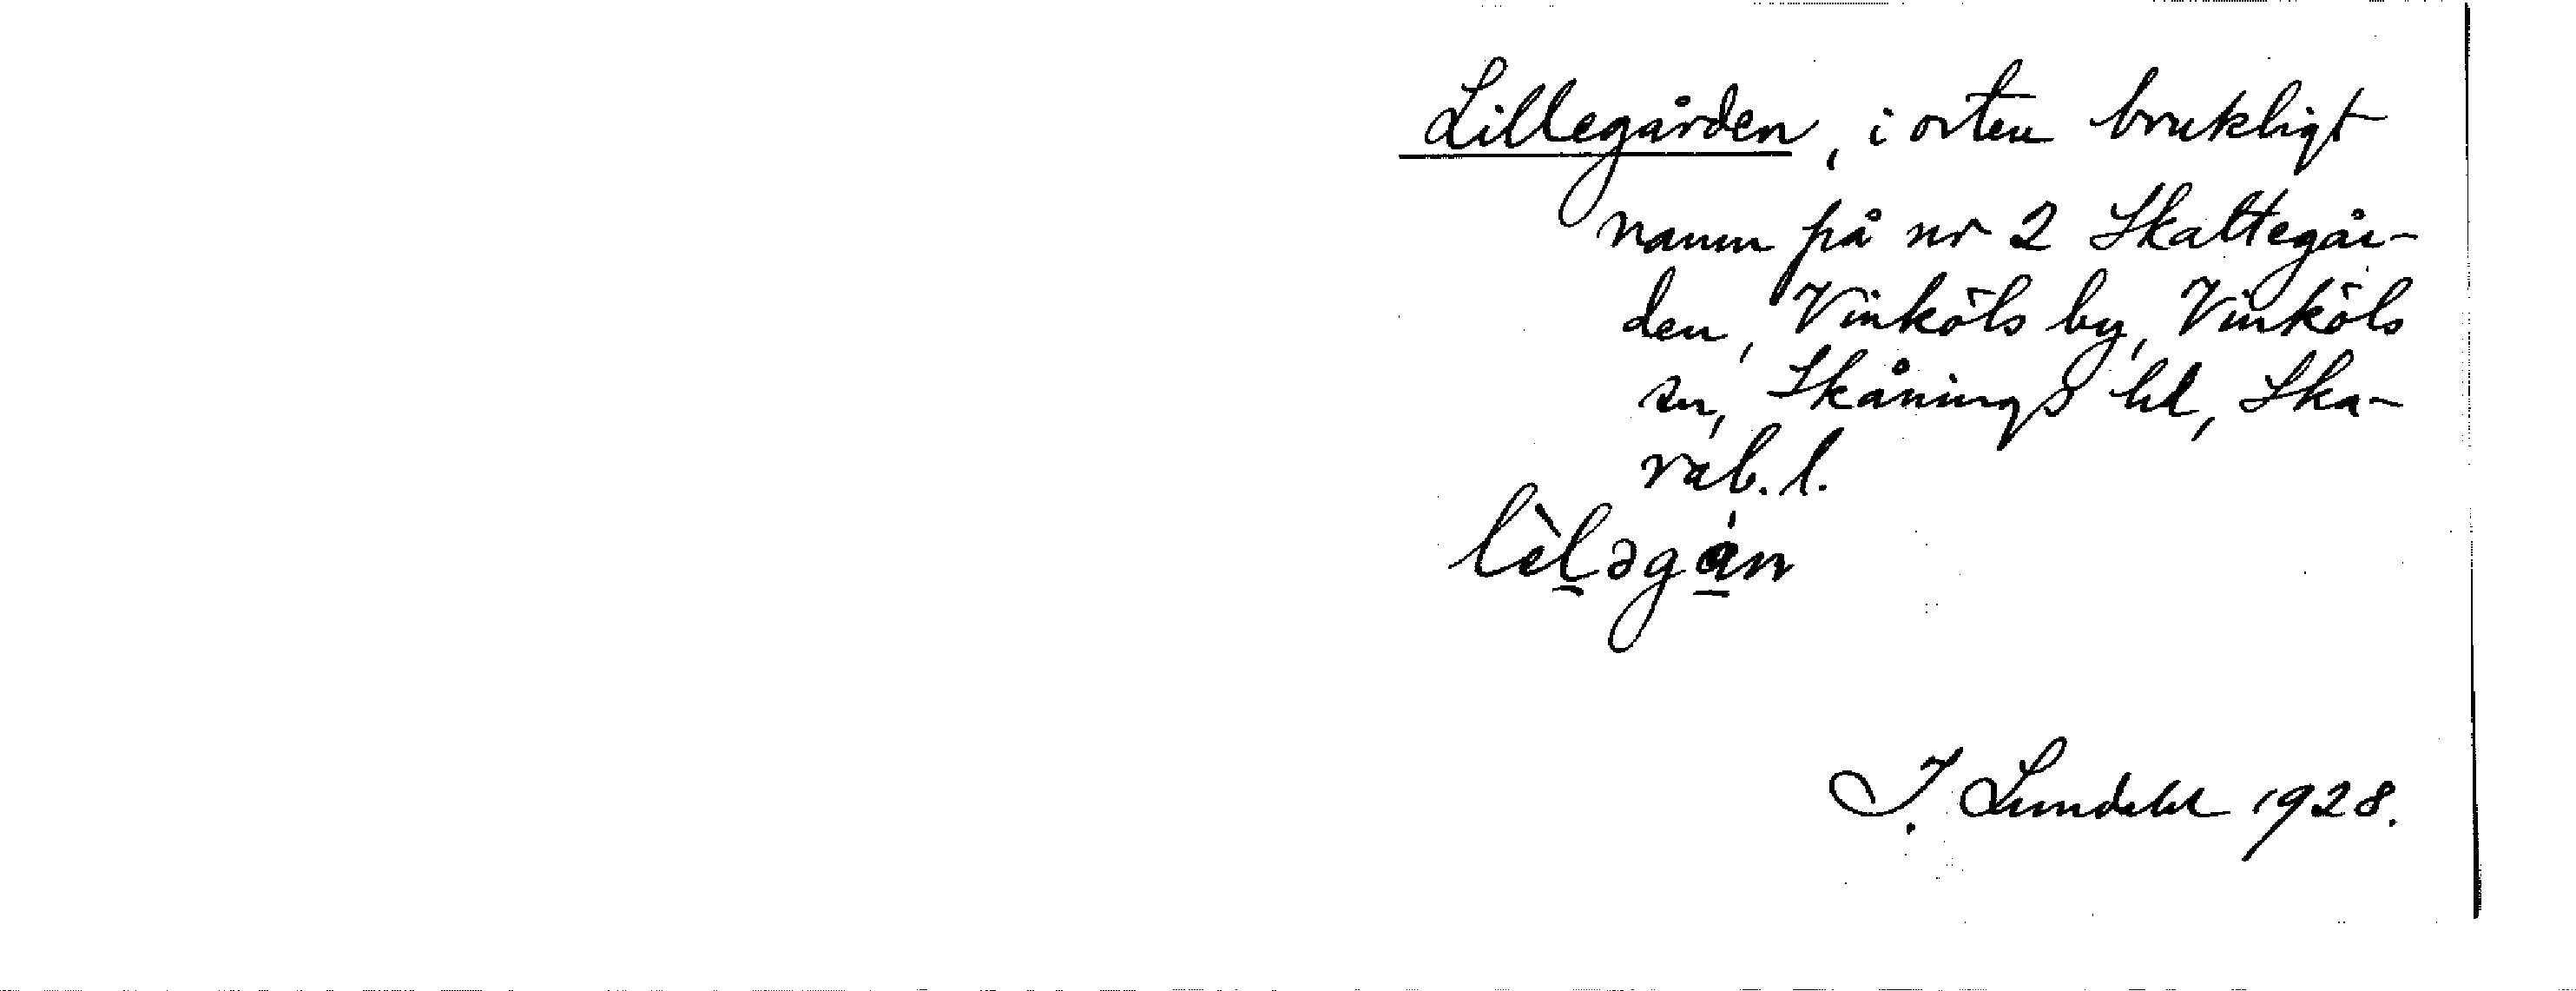 Lillegården, i orten brukligt
namn på nr 2 Skattegår-
den, Vinköls by, Vinköls
sn, Skånings hd, Ska-
rab. l.
lèləgán
J. Lundahl 1928.